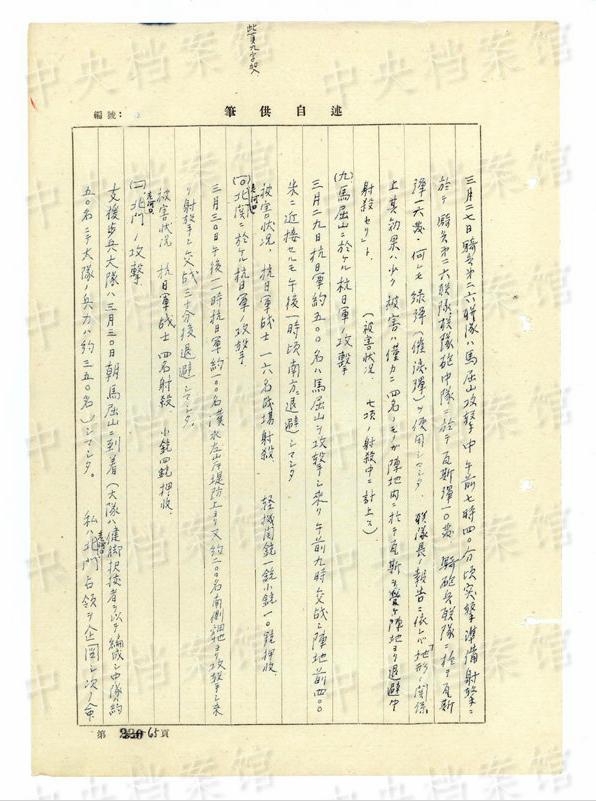 此頁九字加入
編號:
筆供自述
三月二七日騎兵第二六聯隊ハ馬屈山攻撃中午前七時四〇分頃突撃準備射撃ニ
於テ騎兵第二六聯隊聯隊砲中隊ニ於テ瓦斯彈一〇發、騎砲兵聯隊ニ於テ瓦斯
彈一六發、何レモ緑彈(催淚彈)ヲ使用シマシタ、聯隊長ノ報告ニ依レバ「地形ノ関係
上其効果ハ少ク被害ハ僅カニ四名ノモノガ陣地内ニ於テ瓦斯ヲ受ケ陣地ヨリ退避中
射殺セリ」ト、
(被害状況 七項ノ射殺中ニ計上ス)
(九)馬屈山ニ於ケル抗日軍ノ攻撃
三月二九日抗日軍約五〇〇名ハ馬屈山ヲ攻撃シ来リ午前九時交戦シ陣地前四〇〇
米ニ近接セルモ午後一時頃南方ニ退避シマシタ
被害状況、抗日軍戦士一六名戦場射殺、軽機関銃一銃小銃一〇銃押收、
(一〇)老河口北関ニ於ケル抗日軍ノ攻撃
三月三〇日午後一一時抗日軍約一〇〇名漢水左岸堤防上ヨリ又約二〇〇名南側凹地ヨリ攻撃シ来
リ射撃シ交戦三十分後退避シマシタ。
被害状況 抗日軍戦士四名射殺 小銃四銃押收、
(二)老河口北門ノ攻撃
支援歩兵大隊ハ三月三〇日朝馬屈山ニ到着(大隊ハ健脚択抜者ヲ以テ編成シ中隊約
五〇名ニテ大隊ノ兵力ハ約三五〇名)シマシタ。 私ハ老河口北門占領ヲ企図シ次ノ命
第 65頁